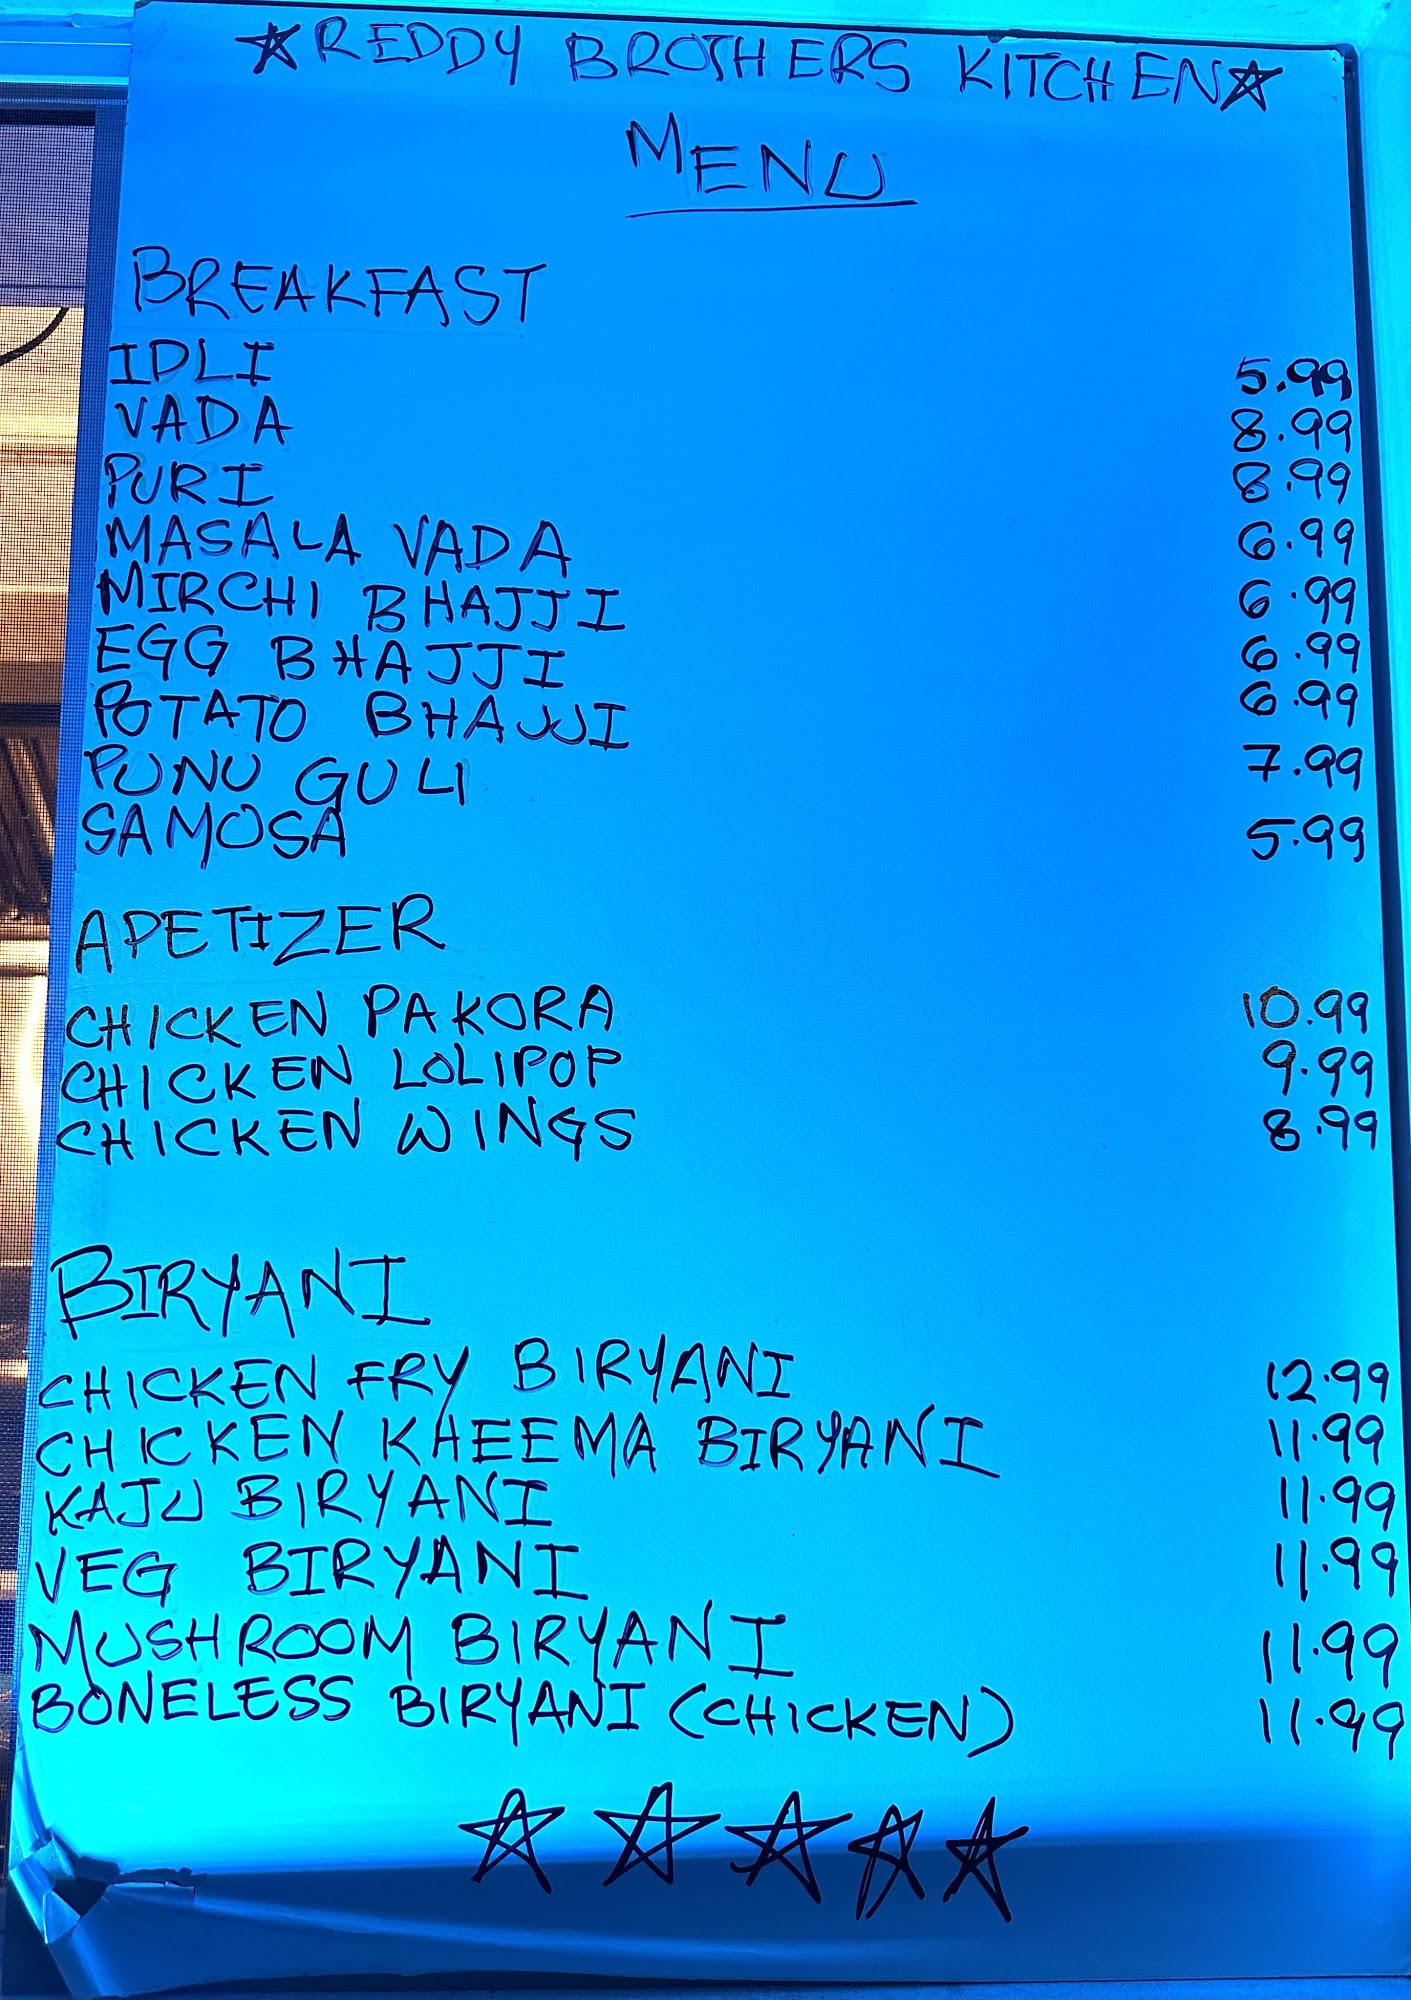 REDDY BROTHERS KITCHEN
MENU
BREAKFAST
IDLI 5.99
VADA 8.99
PURI 8.99
MASALA VADA 6.99
MIRCHI BHAJJI 6.99
EGG BHAJJI 6.99
POTATO BHAJJI 6.99
PUNU GULI 7.99
SAMOSA 5.99
APETIZER
CHICKEN PAKORA 10.99
CHICKEN LOLIPOP 9.99
CHICKEN WINGS 8.99
BIRYANI
CHICKEN FRY BIRYANI 12.99
CHICKEN KHEEMA BIRYANI 11.99
KAJU BIRYANI 11.99
VEG BIRYANI 11.99
MUSHROOM BIRYANI 11.99
BONELESS BIRYANI (CHICKEN) 11.99